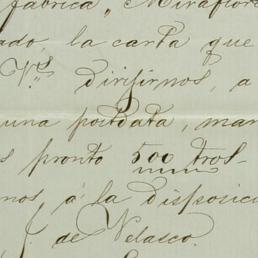 fábrica „ Miraflor
ado, la carta que
V.s dirijirnos, a
una postdata, man
s pronto 500 tros-
nos, á la disposici
J. de Velasco.